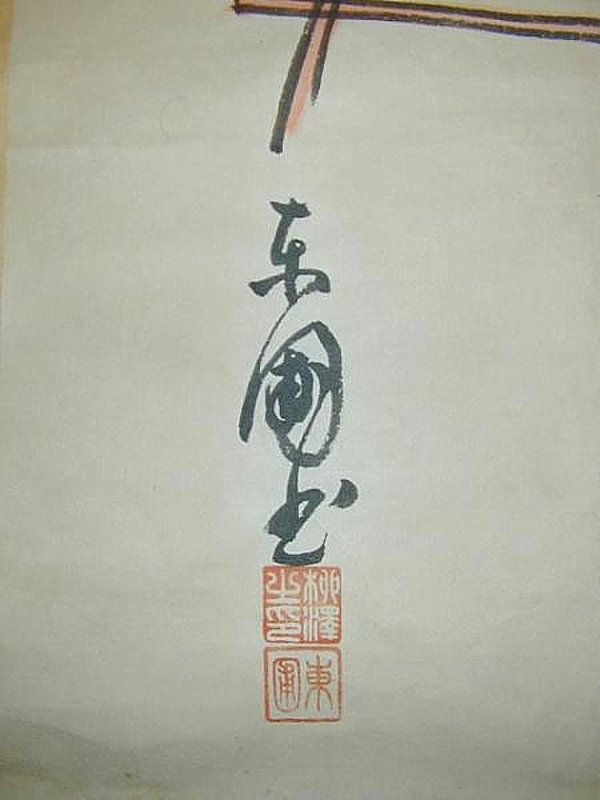 東圃書
柳澤之印
東圃